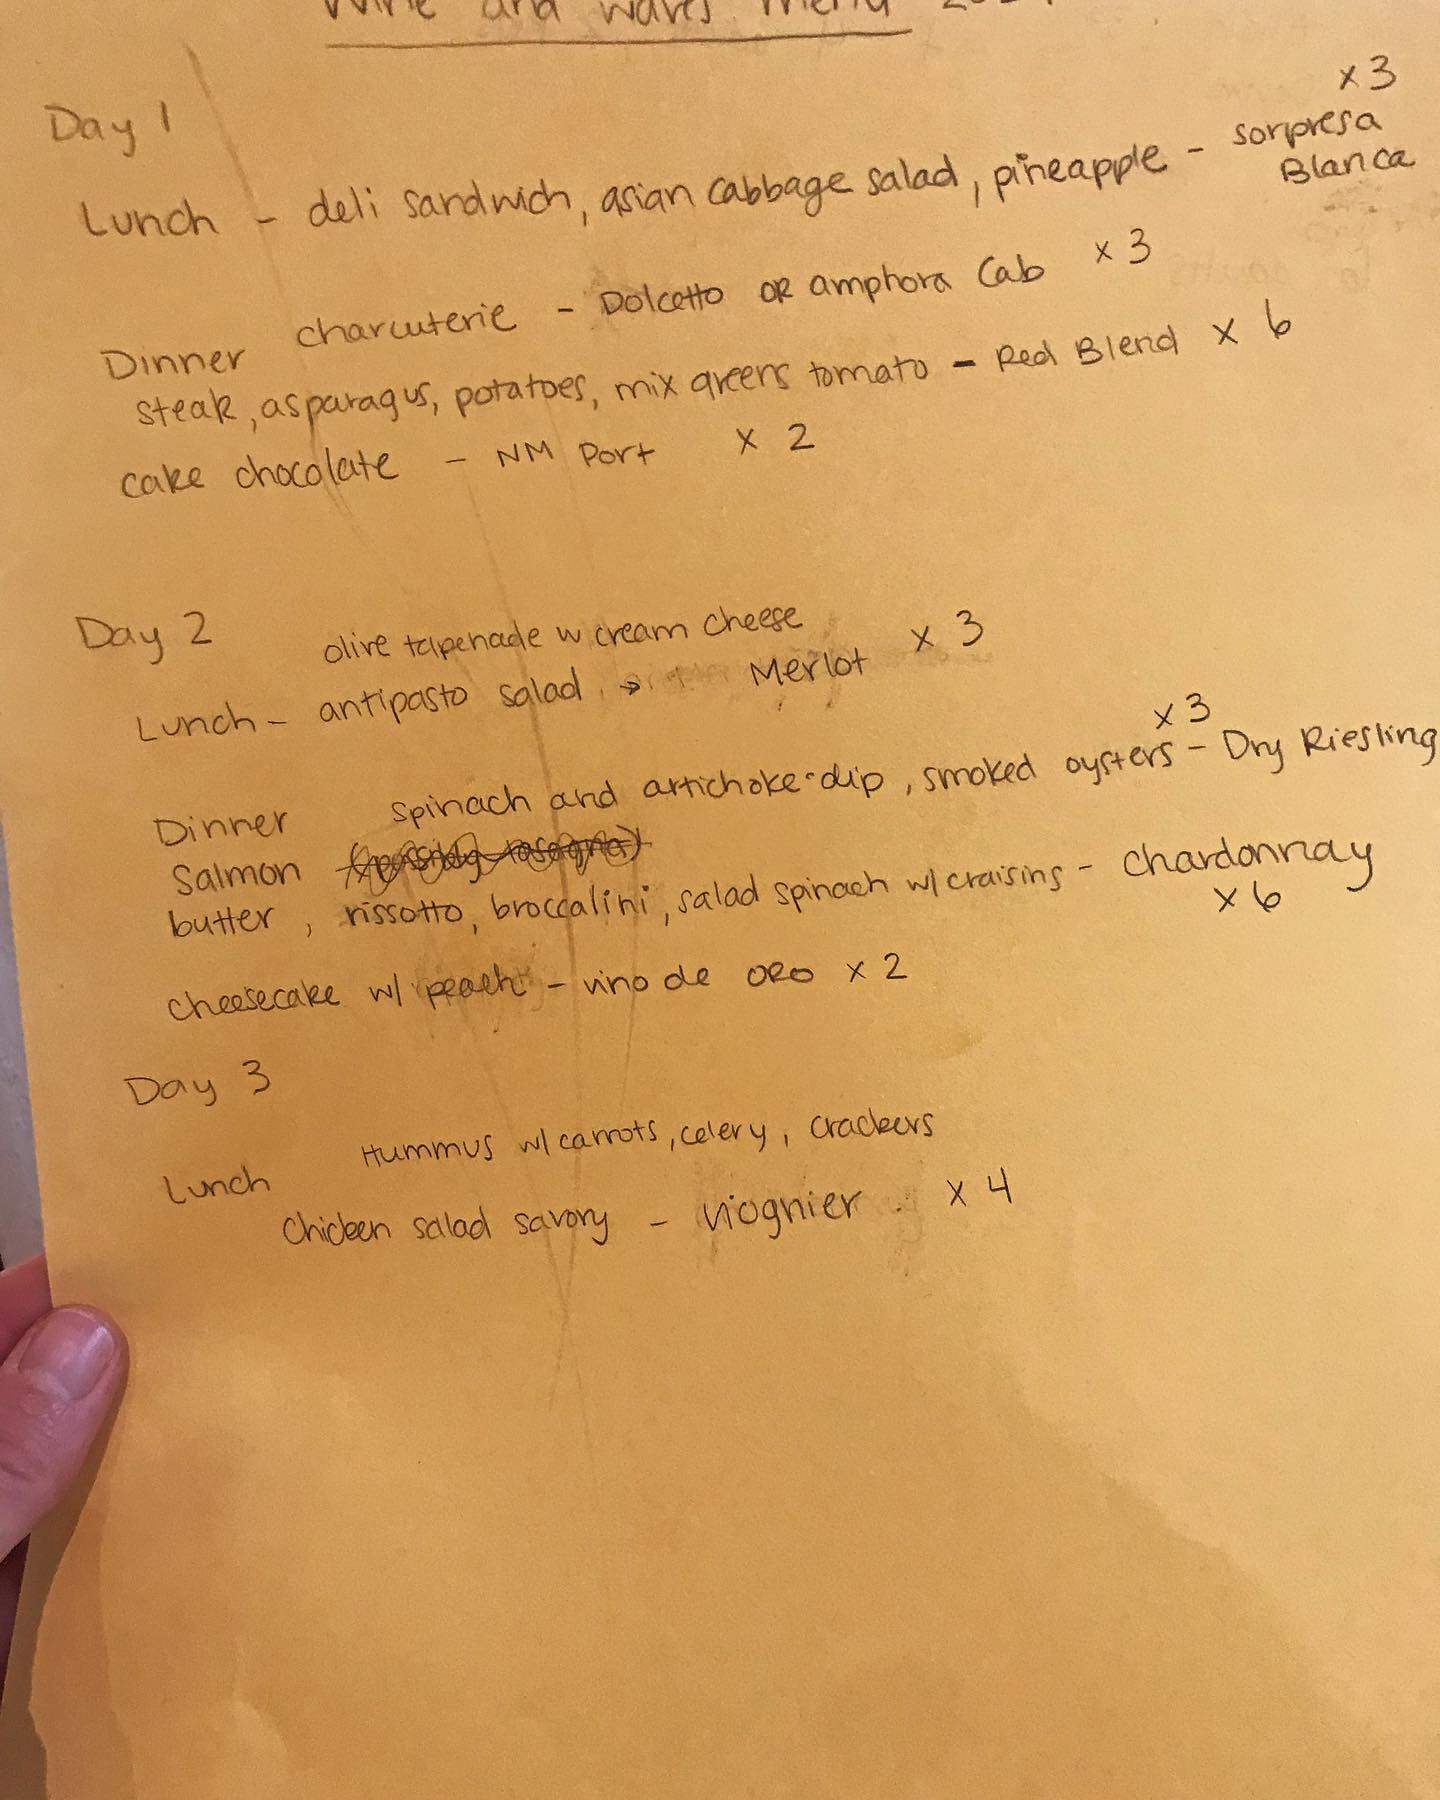 Wine and Waves Menu
Day 1
x 3
Lunch - deli sandwich, asian cabbage salad, pineapple - sorpresa
Blanca
charcuterie - Dolcetto OR amphora Cab x 3
Dinner
steak, asparagus, potatoes, mix greens tomato - Red Blend x 6
cake chocolate - NM Port x 2
Day 2
olive tapenade w cream cheese
Lunch - antipasto salad → Merlot x 3
x 3
Dinner spinach and artichoke dip, smoked oysters - Dry Riesling
Salmon
butter, rissotto, broccalini, salad spinach w/ craisins - Chardonnay
x 6
cheesecake w/ peach - vino de ORO x 2
Day 3
Hummus w/ carrots, celery, crackers
Lunch
Chicken salad savory - Viognier x 4